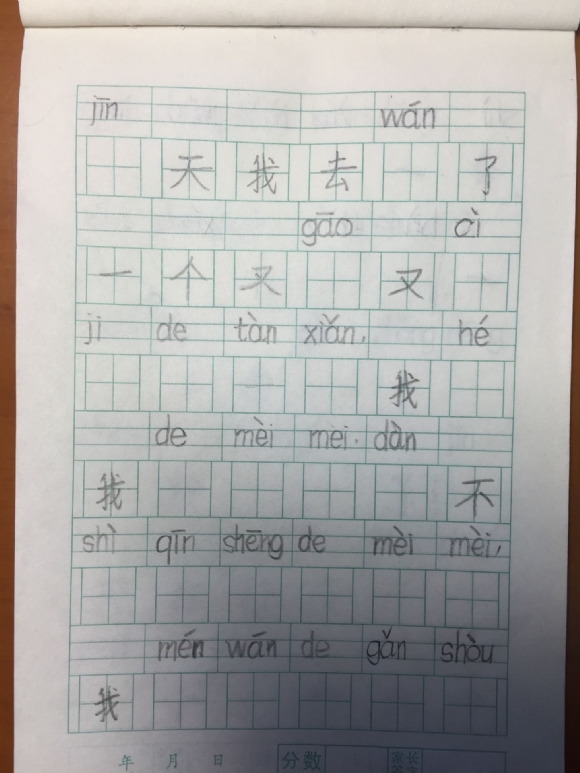 jīn wán
天 我 去 了
gāo cì
一 个 又 又
ji de tàn xiǎn, hé
我
de mèi mei. dàn
我 不
shì qīn shēng de mèi mèi,
mén wán de gǎn shòu
我
年 月 日 分数 家长